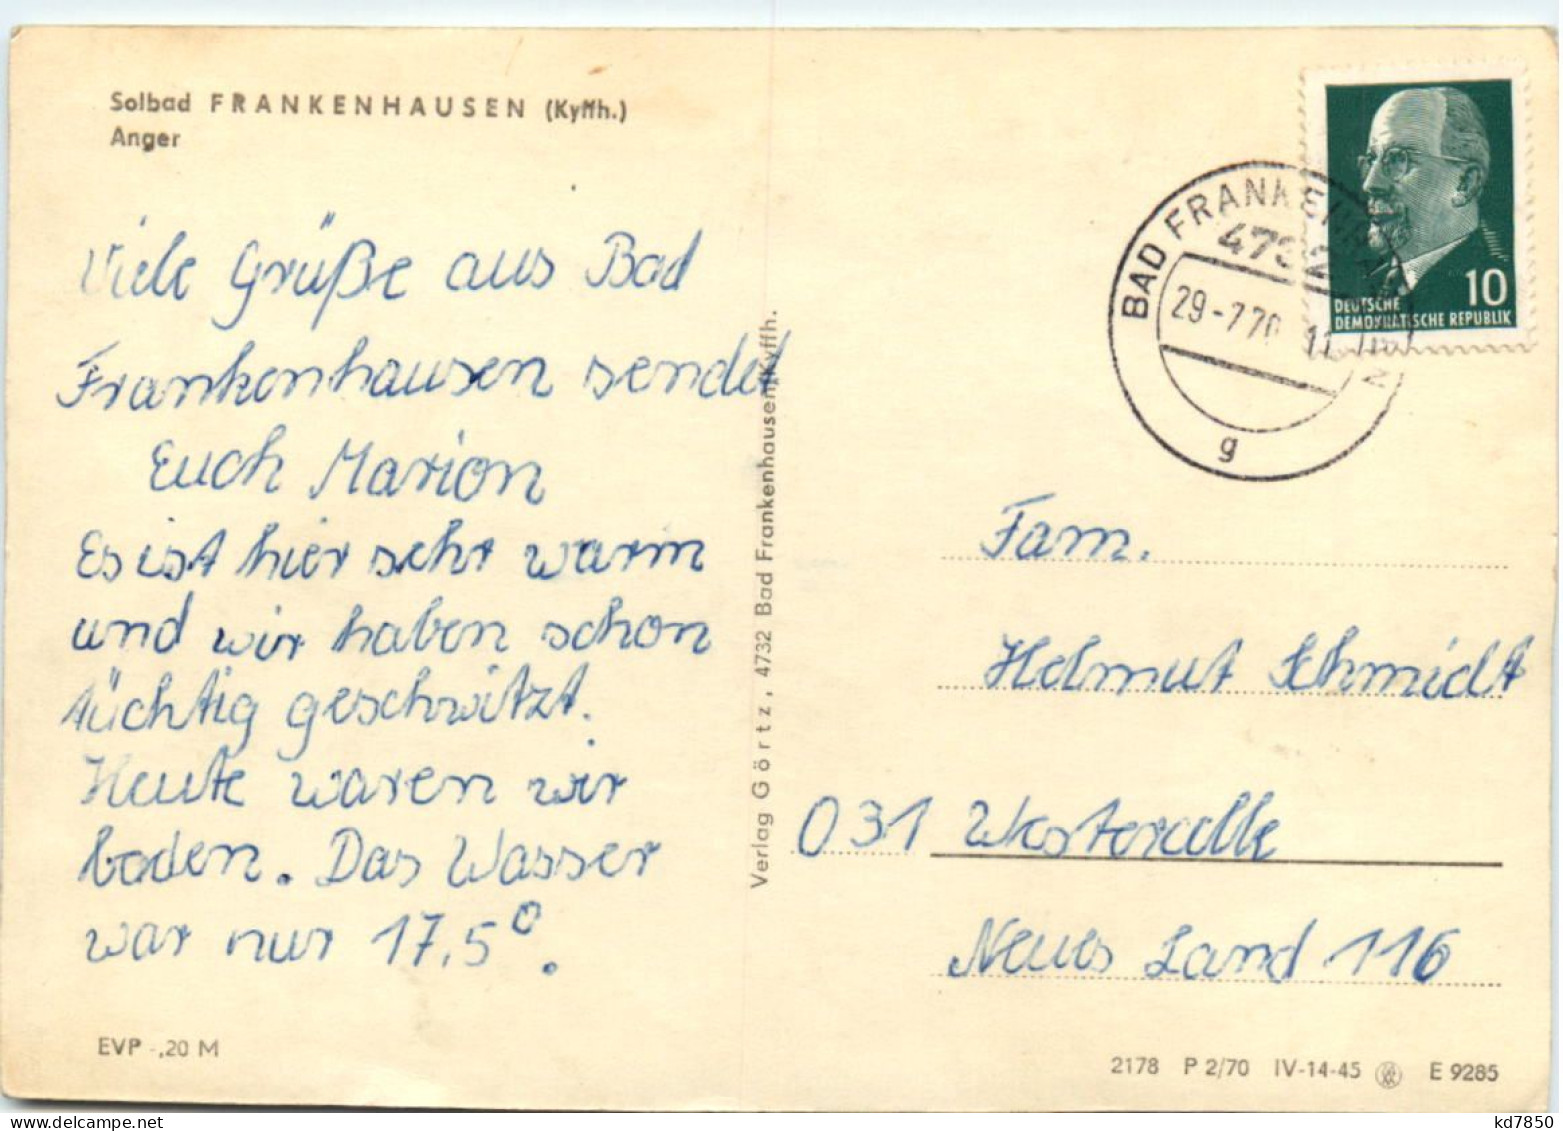 Solbad FRANKENHAUSEN (Kyffh.)
Anger
Viele Grüße aus Bad
Frankenhausen sendet
Euch Marion
Es ist hier sehr warm
und wir haben schon
tüchtig geschwitzt.
Heute waren wir
baden. Das Wasser
war nur 17,5°.
EVP -,20 M
Verlag Görtz, 4732 Bad Frankenhausen/Kyffh.
BAD FRANKENHAUSEN
4732
29-7.70
g
10
DEUTSCHE
DEMOKRATISCHE REPUBLIK
Fam.
Helmut Schmidt
031 Westercelle
Neues Land 116
2178 P 2/70 IV-14-45 E 9285
kd7850